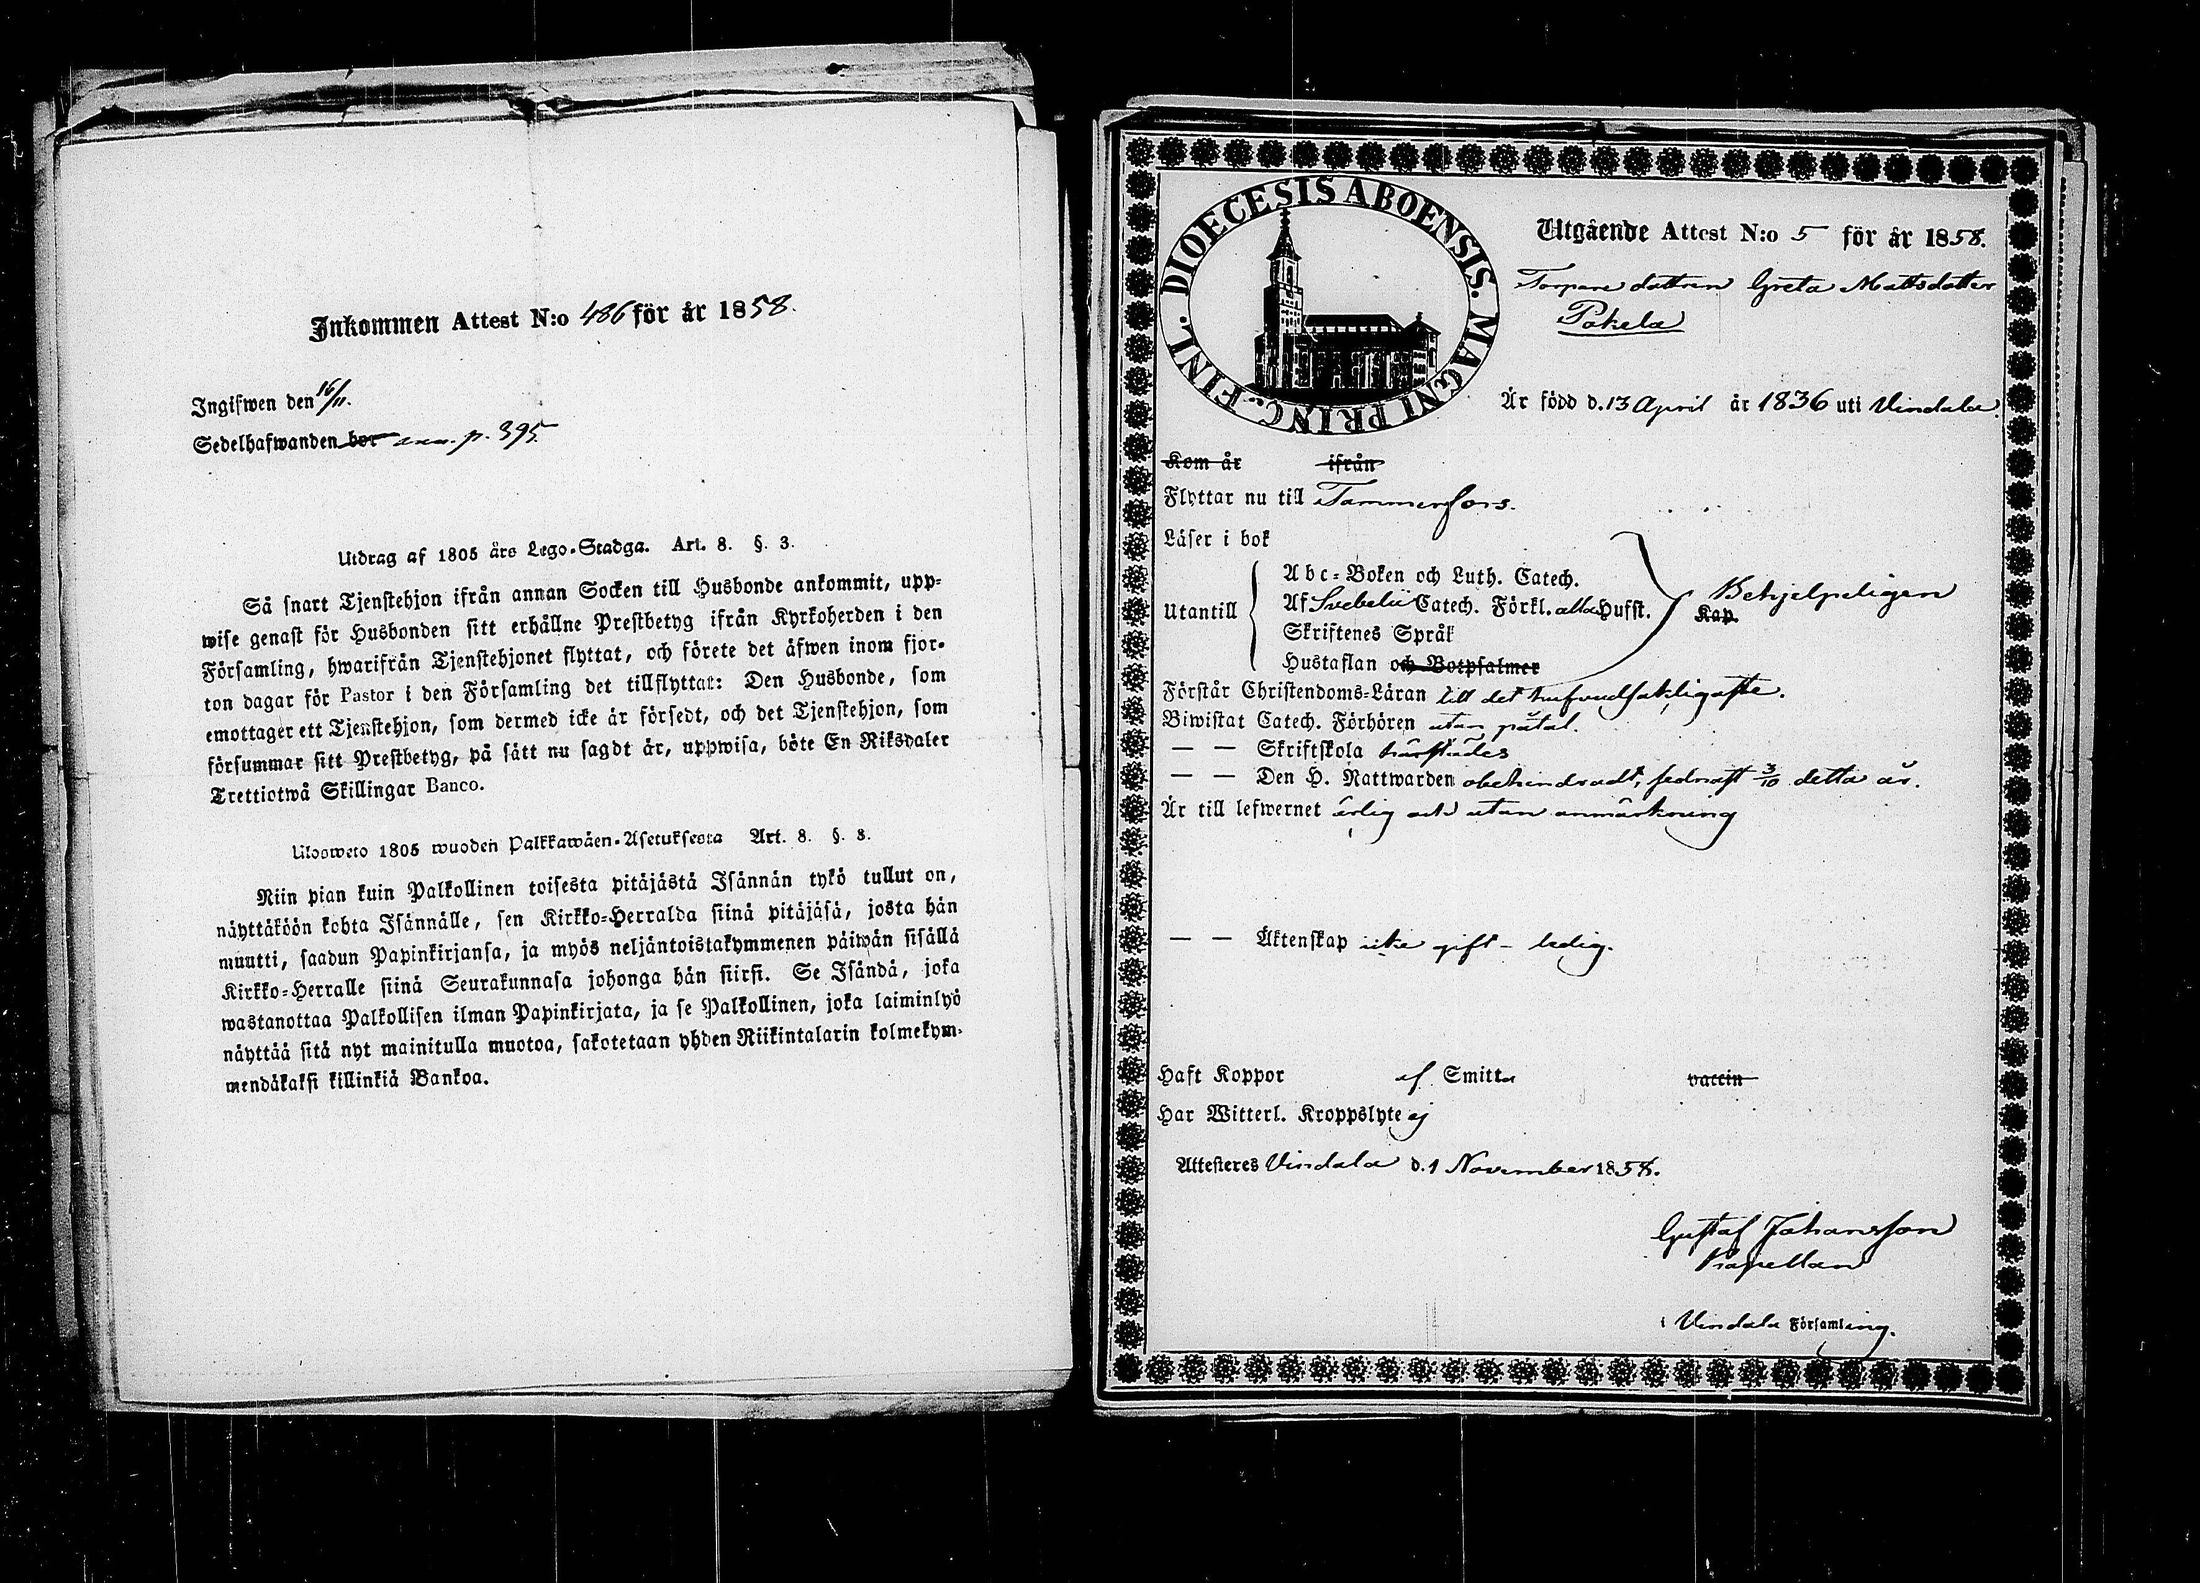 Inkommen Attest N:o 486 för år 1858.
Ingifwen den 16/11.
Sedelhafwanden bor ann. p. 395.
Utdrag af 1805 års Lego-Stadga. Art. 8. §. 3.
Så snart Tjenstehjon ifrån annan Socken till Husbonde ankommit, upp-
wise genast för Husbonden sitt erhållne Prestbetyg ifrån Kyrkoherden i den
Församling, hwarifrån Tjenstehjonet flyttat, och förete det äfwen inom fjor-
ton dagar för Pastor i den Församling det tillflyttat: Den Husbonde, som
emottager ett Tjenstehjon, som dermed icke är försedt, och det Tjenstehjon, som
försummar sitt Prestbetyg, på sätt nu sagdt är, uppwisa, böte En Riksdaler
Trettiotwå Skillingar Banco.
Ulosweto 1805 wuoden Palkkawäen-Asetuksesta Art. 8. §. 3.
Niin pian kuin Palkollinen toisesta pitäjästä Isännän tykö tullut on,
näyttäköön kohta Isännälle, sen Kirkko-Herralda siinä pitäjäsä, josta hän
muutti, saadun Papinkirjansa, ja myös neljäntoistakymmenen päiwän sisällä
Kirkko-Herralle siinä Seurakunnasa johonga hän siirsi. Se Isändä, joka
wastanottaa Palkollisen ilman Papinkirjata, ja se Palkollinen, joka laiminlyö
näyttää sitä nyt mainitulla muotoa, sakotetaan yhden Riikintalarin kolmekym-
mendäkaksi killinkiä Bankoa.
DIOECESIS ABOENSIS. MAGNI PRINC. FINL.
Utgående Attest N:o 5 för år 1858.
Torpare dottren Greta Mattsdotter
Pokela
Är född d. 13 April år 1836 uti Vindala.
Kom år ifrån
Flyttar nu till Tammerfors.
Läser i bok
Abc-Boken och Luth. Catech.
Utantill Af Svebelii Catech. Förkl. alla Hufst. Kap. Behjelpeligen
Skriftenes Språk
Hustaflan och Botpsalmer
Förstår Christendoms-Läran till det hufvudsakligaste.
Biwistat Catech. Förhören utan påtal.
— — Skriftskola härstädes
— — Den H. Nattwarden obehindradt, sednast 3/10 detta år.
Är till lefwernet ärlig och utan anmärkning
— — Äktenskap icke gift - ledig.
Haft Koppor af Smitta vaccin
Har Witterl. Kroppslyte ej
Attesteres Vindala d. 1 November 1858.
Gustaf Johansson
Kapellan
i Vindala Församling.